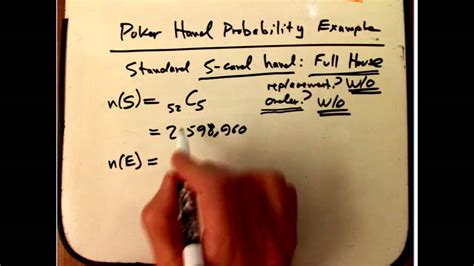 Poker Hand Probability Example
Standard 5-card hand: Full House
replacement? W/O
n(S) = 52C5 order? W/O
= 2,598,960
n(E) =